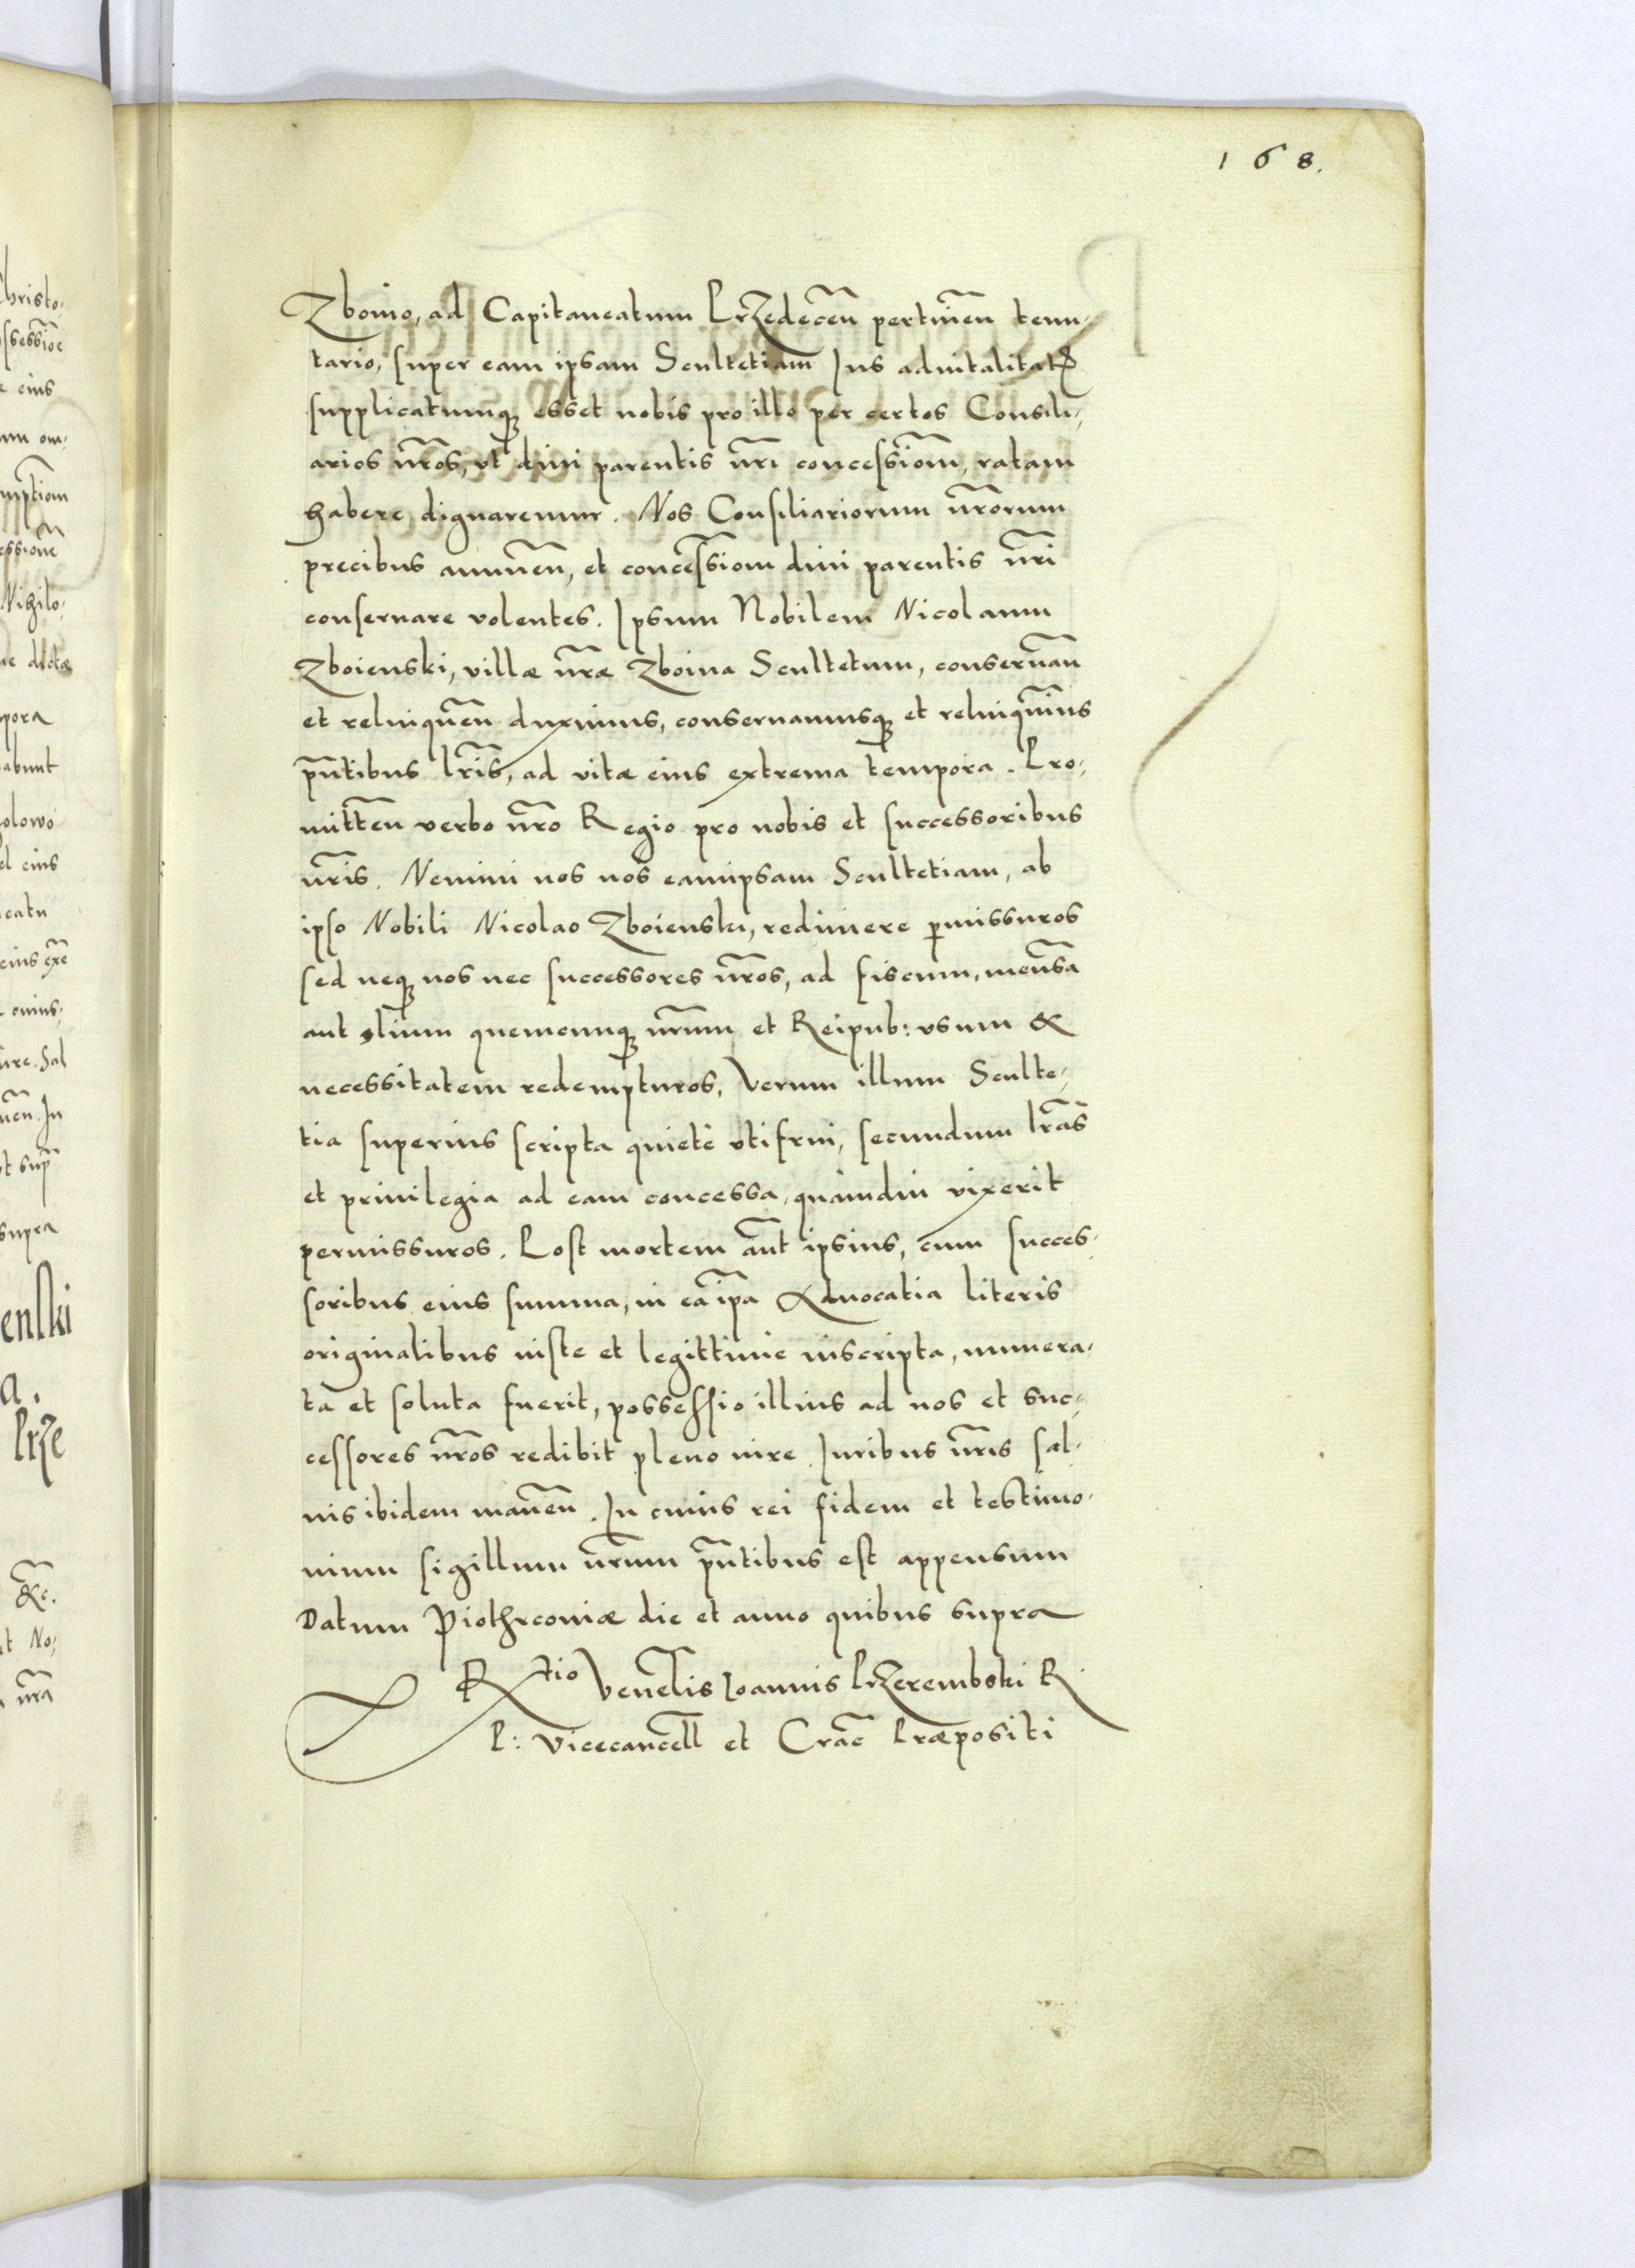 168.
Zboino, ad Capitaneatum Przedecen̄ pertinen̄ tenu-
tario, super eam ipsam Scultetiam Ius aduitalitatꝫ
supplicatumqꝫ esset nobis pro illo per certos Consili-
arios nr̄os, vt diui parentis nr̄i concessiom̄, ratam
habere dignaremur. Nos Consiliariorum nr̄orum
precibus annuen̄, et concessiom̄ diui parentis nr̄i
conseruare volentes. Ipsum Nobilem Nicolaum
Zboienski, villæ nr̄æ Zboina Scultetum, conseruan̄
et relinquen̄ duximus, conseruamusqꝫ et relinquim̄us
pn̄tibus lr̄is, ad vitæ eius extrema tempora. Pro-
mitten̄ verbo nr̄o Regio pro nobis et successoribus
nr̄is. Nemini nos nos eamipsam Scultetiam, ab
ipso Nobili Nicolao Zboienski, redimere ꝑmissuros
sed neqꝫ nos nec successores nr̄os, ad fiscum, mensā
aut aliūm quemcunqꝫ nr̄um et Reipub: vsum &
necessitatem redempturos, Verum illum Sculte-
tia superius scripta quietè vtifrui, secundum lr̄as
et priuilegia ad eam concessa, quàmdiu vixerit
permissuros. Post mortem aūt ipsius, cum succes-
soribus eius summa, in ea īpa Aduocatia literis
originalibus iuste et legittimè inscripta, numera-
ta et soluta fuerit, possessio illius ad nos et suc-
cessores nr̄os redibit pleno iure. Iuribus nr̄is sal-
uis ibidem manen̄. In cuius rei fidem et testimo-
nium sigillum nr̄um pn̄tibus est appensum
Datum Piothrconiæ die et anno quibus supra
Rtio Venel̄is Ioannis Przerembski R.
P: Vicecancell̄ et Crac̄ Præpositi